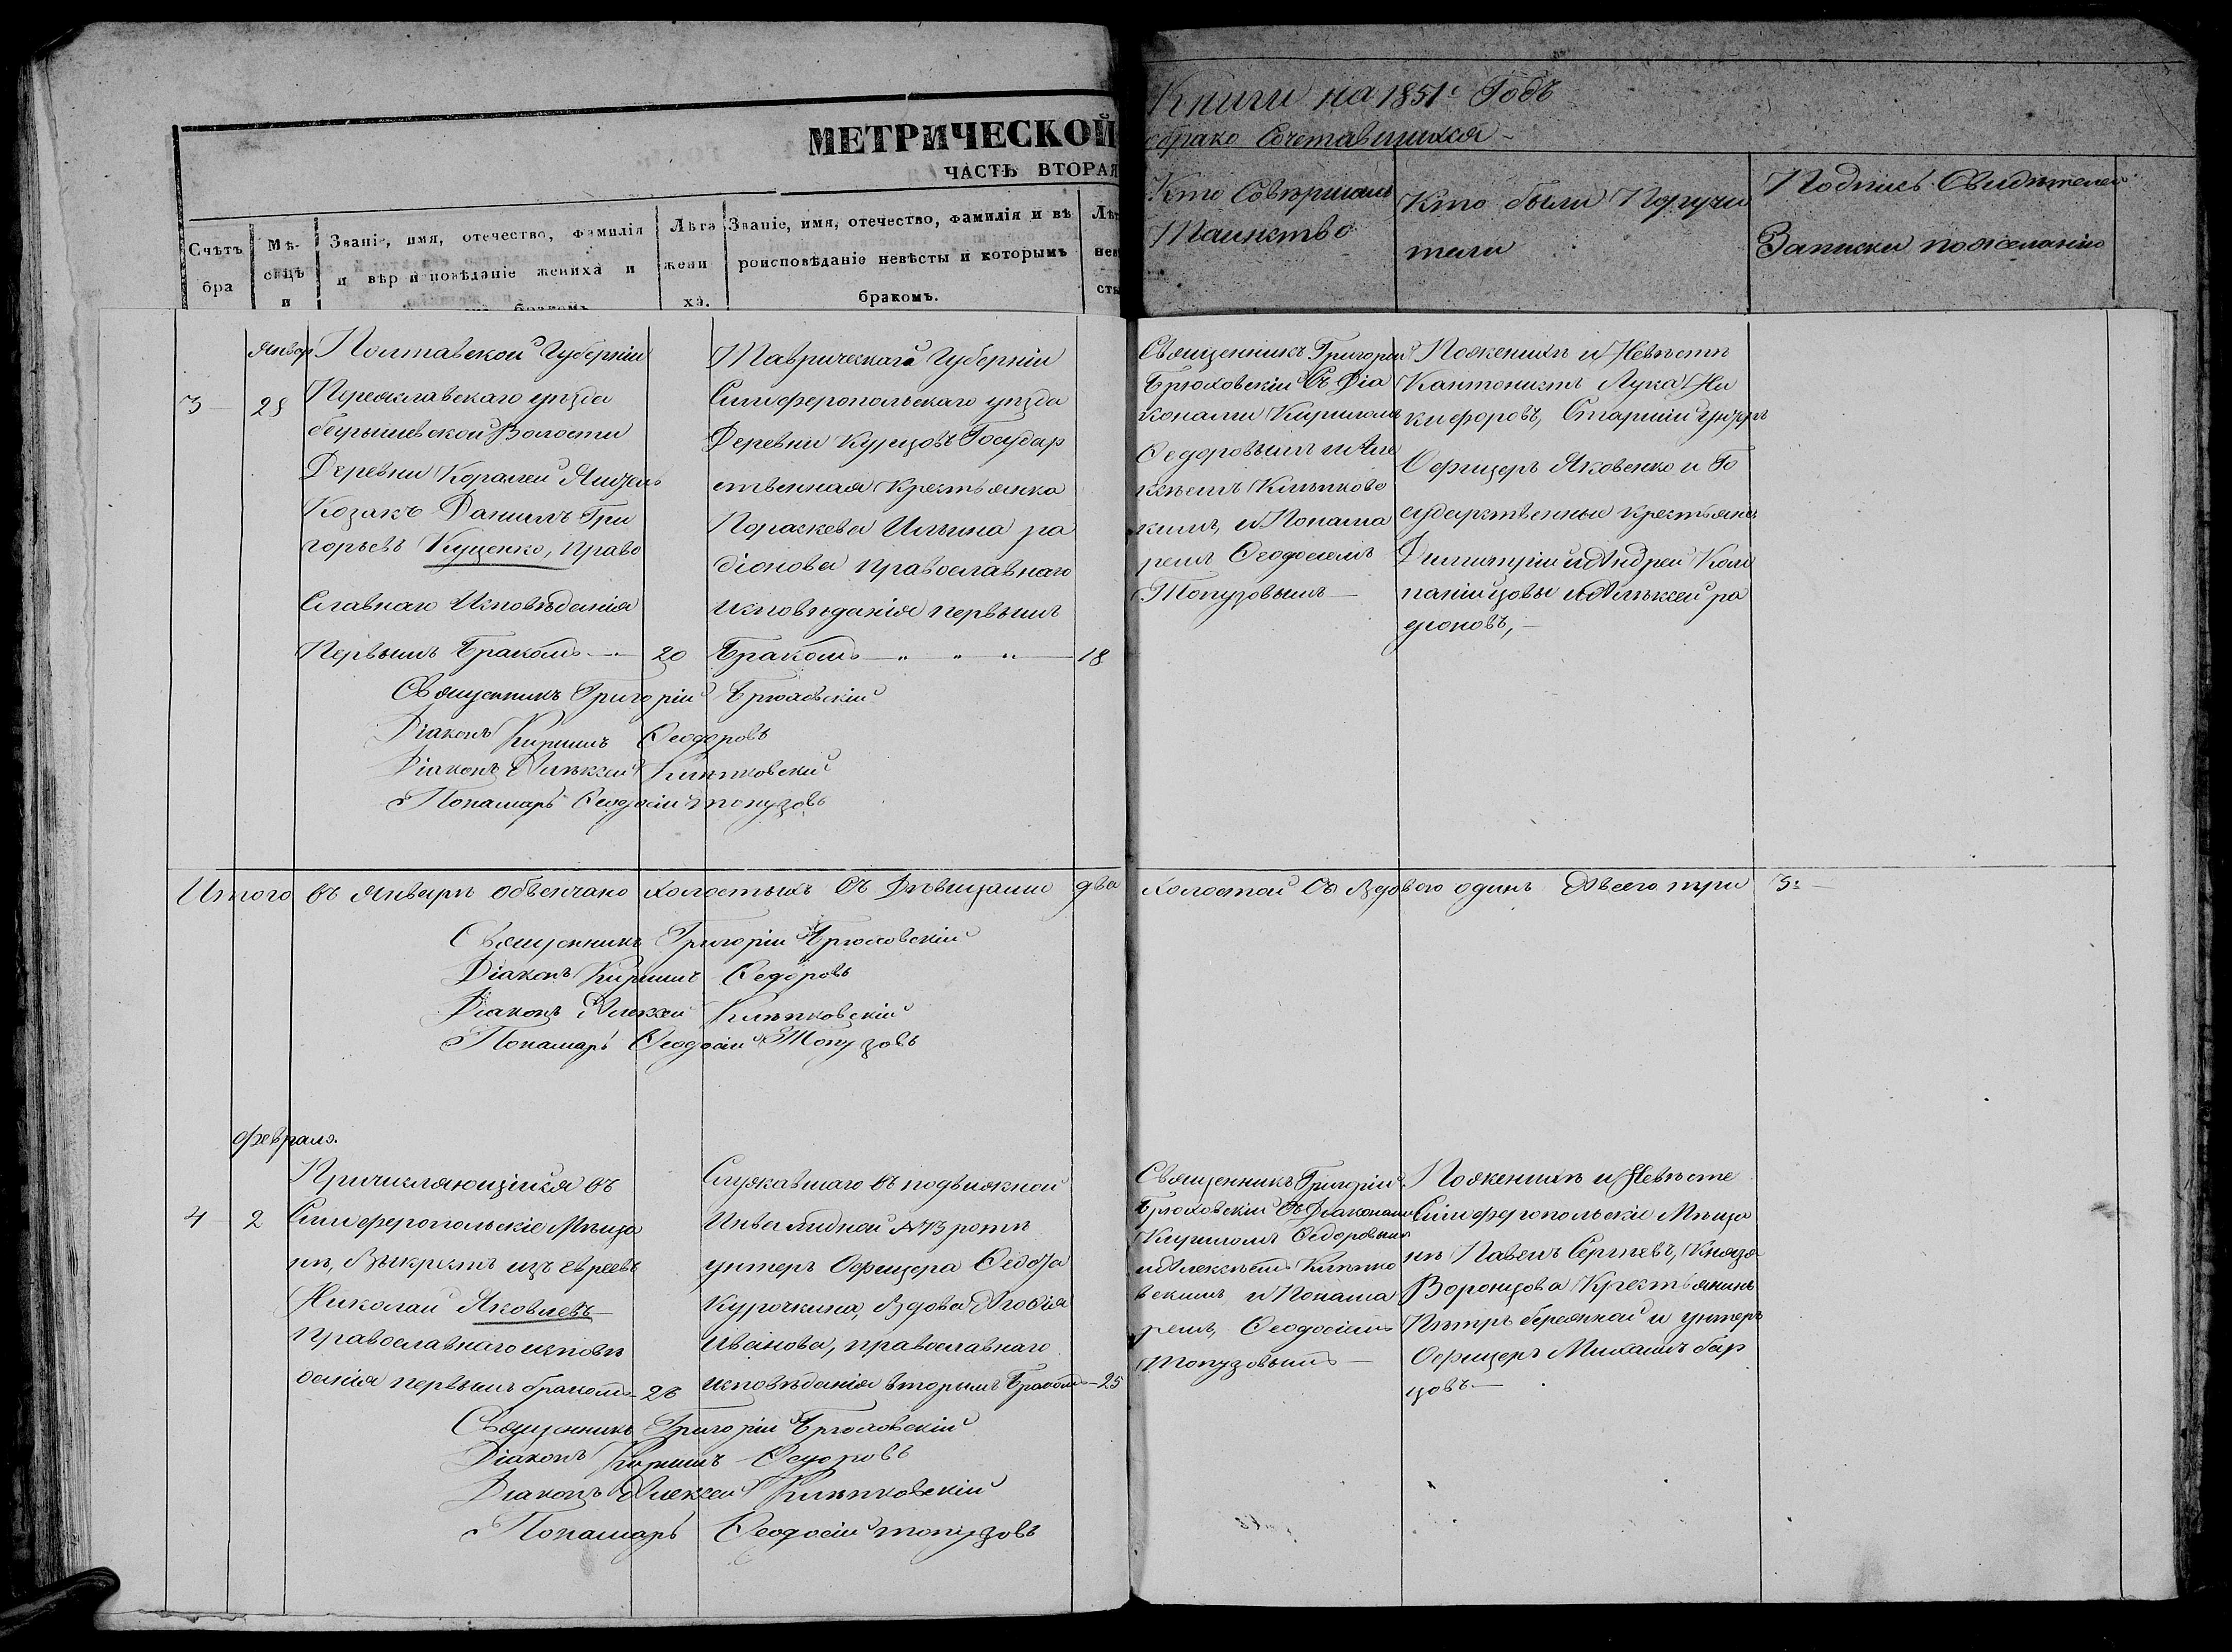 МЕТРИЧЕСКОЙ
ЧАСТЬ ВТОРАЯ
Счетъ
бра
Мѣ-
сяцъ
и
Званіе, имя, отечество, фамилія
и вѣроисповѣданіе жениха и
бракомъ
Лѣта
жени
ха.
Званіе, имя, отечество, фамилія и вѣ
роисповѣданіе невѣсты и которымъ
бракомъ.
Лѣт
нев
сты
Книги на 1851й Годъ
обрако Сочетавшихся
Кто Совершалъ
Таинство
Кто были Поручи
тели
Подпись Свидѣтелей
Записки пожеланію
3
Январ
28
Полтавской Губерніи
Переяславскаго уѣзда
Деревни
Козакъ Даніилъ Гри
горьевъ Куценко, Право
Славнаго Исповѣданія
Первымъ Бракомъ
20
Таврическаго Губерніи
Симферопольскаго уѣзда
Деревни Курцовъ Государ
ственная Крестьянка
Параскева Ильина ра
діонова православнаго
исповѣданія первымъ
Бракомъ
18
Священникъ Григорій
Брюховскій Съ Діа
конами Кириломъ
Ѳедоровымъ и Але
ксѣемъ Клѣпковс
кимъ, и Понама
ремъ Ѳеодосіемъ
Топузовымъ
Пожених и Невѣстѣ
Кантонистъ Лука Ни
кифоровъ, Старшій Унтеръ
Офицеръ Яковенко и Го
сударственныи крестьяне
Димитрій и Андрей Ком
панійцовы и Алѣксей ра
діоновъ,
Священникъ Григорій Брюховскій
Діаконъ Кирилъ Ѳеодоровъ
Діаконъ Алѣксей Клѣпковскій
Понамарь Ѳеодосій топузовъ
Итого въ Январѣ Обвенчано холостыхъ Съ Дѣвицами два холостой Съ Вдовою одинъ Авсего три 3:
Священникъ Григорій Брюховскій
Діаконъ Кирилъ Ѳедоровъ
Діаконъ Алексѣй Клѣпковскій
Понамарь Ѳеодосій Топузовъ
Февраля.
4
2
Причисляющійся въ
Симферопольскіе Мѣща
нѣ, Выкрестъ изъ евреевъ
Николай Яковлевъ
Православнаго исповѣ
данія первымъ бракомъ
26
Служавшаго въ подвижной
Инвалидной №73 ротѣ
унтеръ Офицера Ѳедота
Курочкина, Вдова
Иванова, православнаго
исповѣданія вторымъ Бракомъ
25
Священникъ Григорій
Брюховскій Съ Діаконами
Кириломъ Ѳедоровымъ
и Алексѣемъ Клѣпко
вскимъ и Понама
ремъ, Ѳеодосіемъ
Топузовымъ
Поженихѣ и Невѣсте
Симферопольскіе Мѣща
нѣ Павелъ Сергѣевъ, Князя
Воронцова Крестьянинъ
Пѣтръ бережной и унтеръ
Офицеръ Михаилъ бар
цовъ
Священникъ Григорій Брюховскій
Діаконъ Кирилъ Ѳедоровъ
Діаконъ Алексѣй Клѣпковскій
Понамарь Ѳеодосій топузовъ